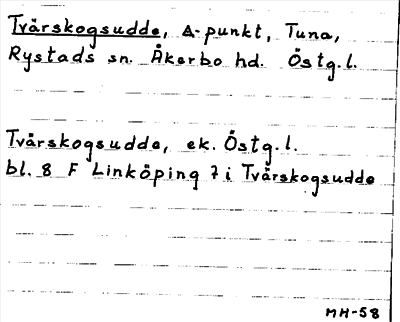 Tvärskogsudde, Δ-punkt, Tuna,
Rystads sn. Åkerbo hd. Östg.l.
Tvärskogsudde, ek. Östg.l.
bl. 8 F Linköping 7 i Tvärskogsudde
MH-58